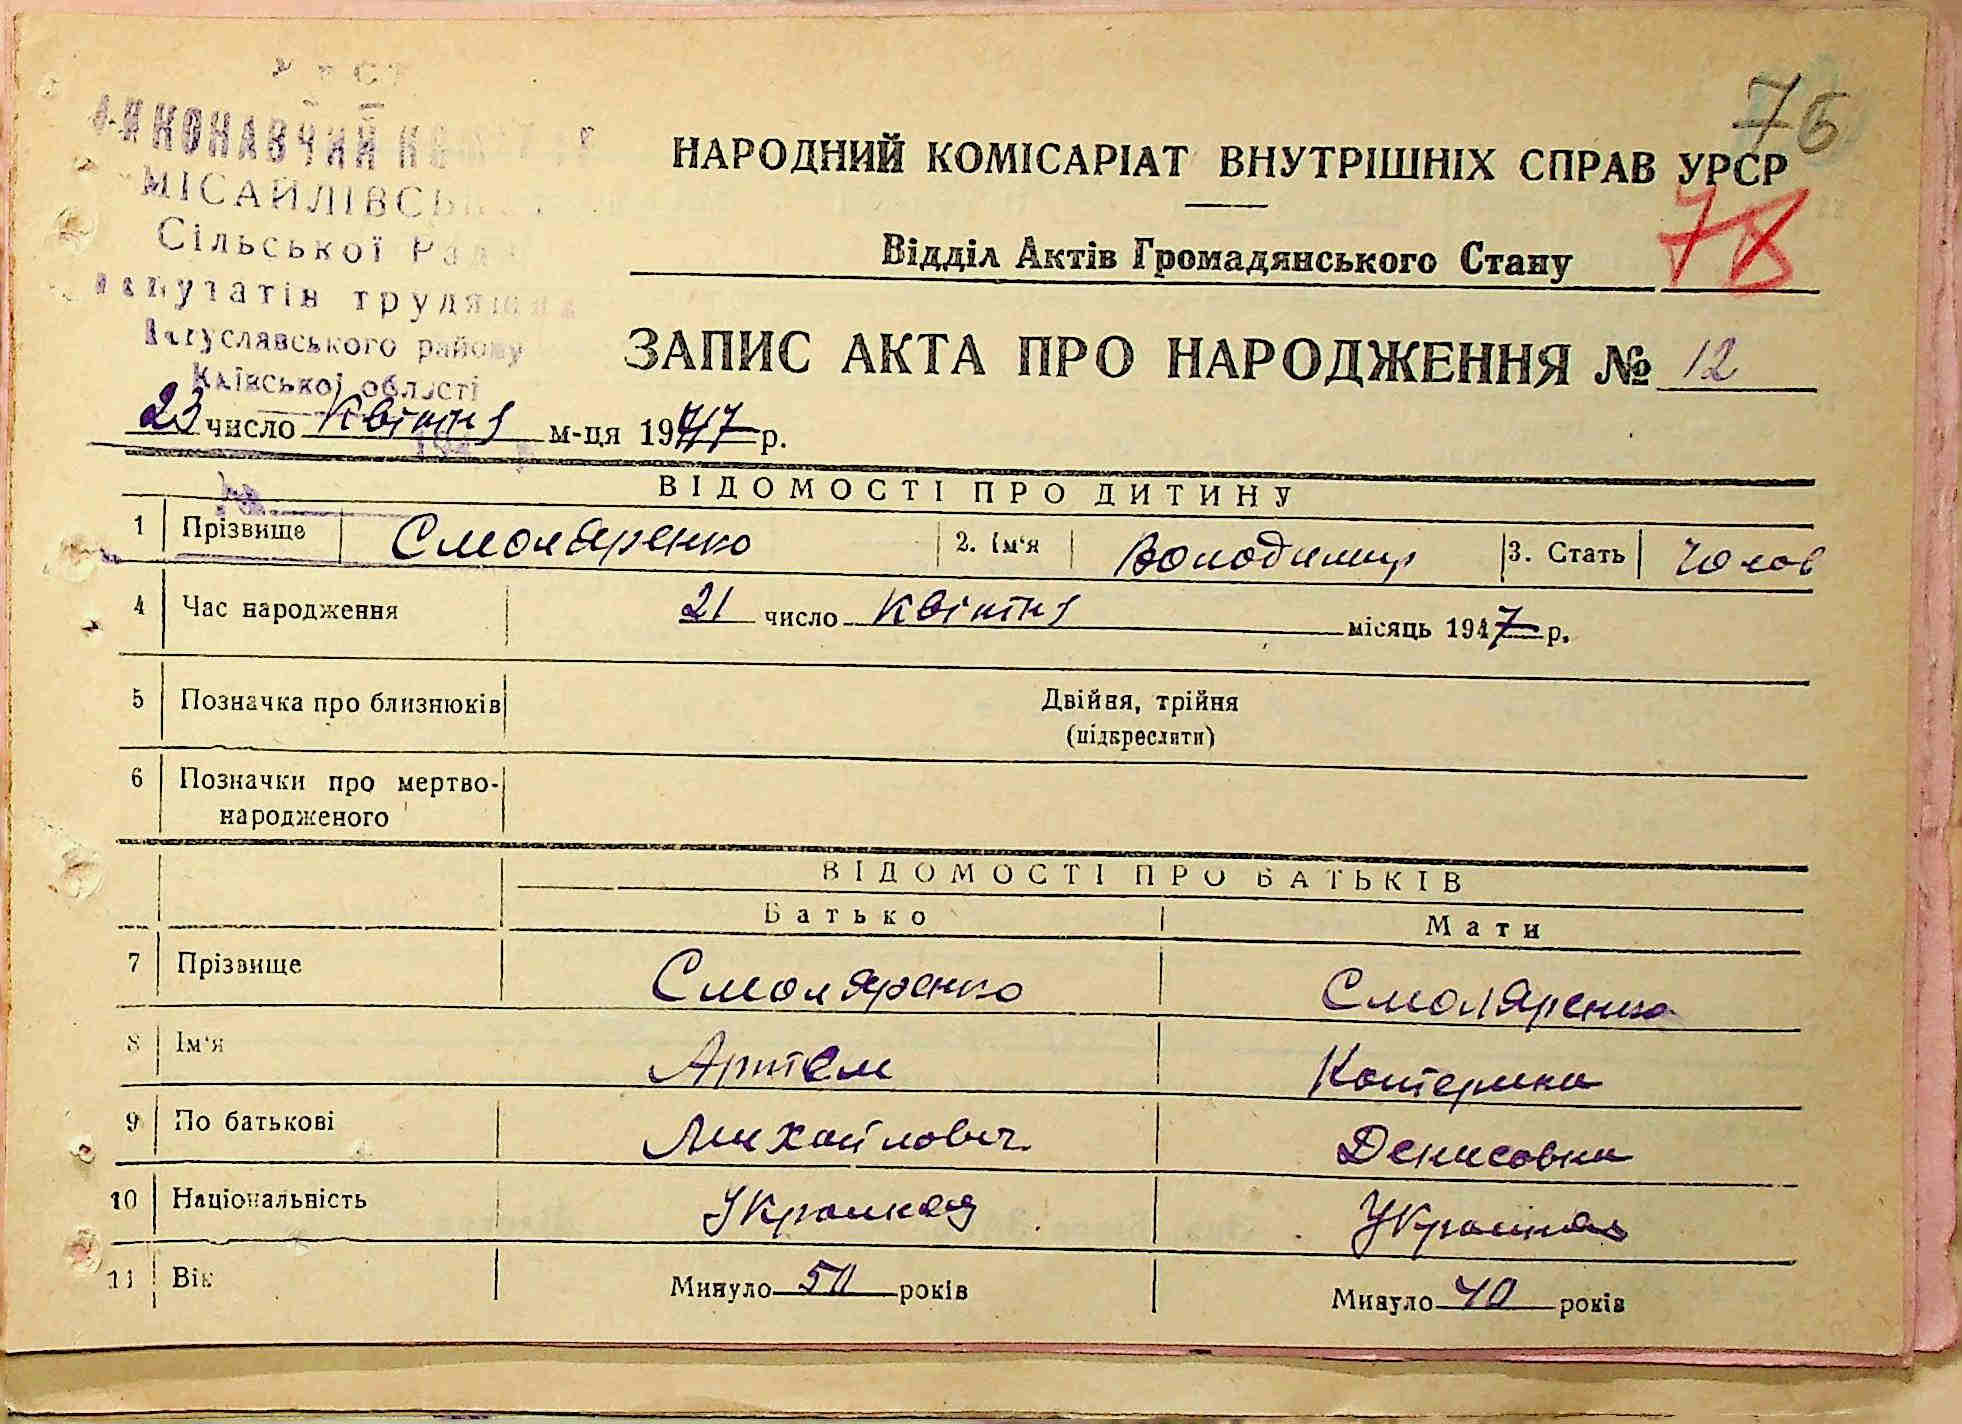 УРСР
ВИКОНАВЧИЙ КОМІТЕТ
МІСАЙЛІВСЬКОЇ
Сільської Ради
депутатів трудящих
Богуславського району
Київської області
76
НАРОДНИЙ КОМІСАРІАТ ВНУТРІШНІХ СПРАВ УРСР
78
Відділ Актів Громадянського Стану
ЗАПИС АКТА ПРО НАРОДЖЕННЯ № 12
23 число Квітня м-ця 1947 р.
ВІДОМОСТІ ПРО ДИТИНУ
1 Прізвище Смоляренко 2. Ім'я Володимир 3. Стать Чолов
4 Час народження 21 число Квітня місяць 1947 р.
5 Позначка про близнюків Двійня, трійня
(підкреслити)
6 Позначки про мертво-
народженого
ВІДОМОСТІ ПРО БАТЬКІВ
Батько Мати
7 Прізвище Смоляренко Смоляренко
8 Ім'я Артем Катерина
9 По батькові Михайлович Денисовна
10 Національність
11 Вік Минуло 50 років Минуло 40 років